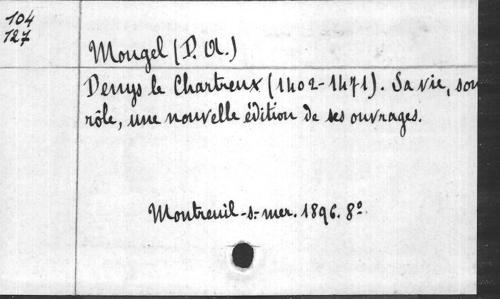 104
127
Mougel (D. A.)
Denys le Chartreux (1402-1471). Sa vie, son
rôle, une nouvelle édition de ses ouvrages.
Montreuil-s-mer. 1896. 8º